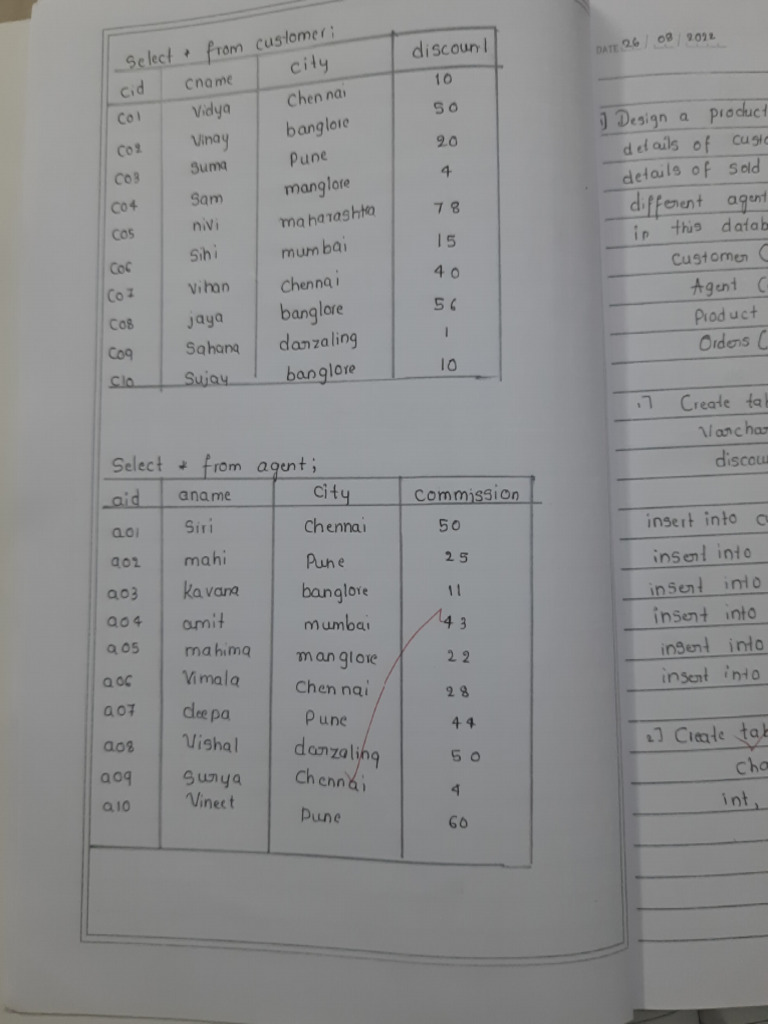 Select * from customer;
cid cname city discount
C01 Vidya Chennai 10
C02 Vinay banglore 50
C03 Suma Pune 20
C04 Sam manglore 4
C05 nivi maharashtra 78
C06 Sihi mumbai 15
C07 Vihan Chennai 40
C08 jaya banglore 56
C09 Sahana darzaling 1
C10 Sujay banglore 10
Select * from agent;
aid aname city Commission
a01 Siri Chennai 50
a02 mahi Pune 25
a03 Kavana banglore 11
a04 amit mumbai 43
a05 mahima manglore 22
a06 Vimala Chennai 28
a07 deepa Pune 44
a08 Vishal darzaling 50
a09 Surya Chennai 4
a10 Vineet Pune 60
DATE 26 / 08 / 2022
1) Design a product
details of custo
details of sold
different agent
in this datab
Customer (
Agent (
Product
Orders (
1) Create tab
Varchar
discou
insert into cu
insert into
insert into
insert into
insert into
insert into
2) Create tab
cha
int,